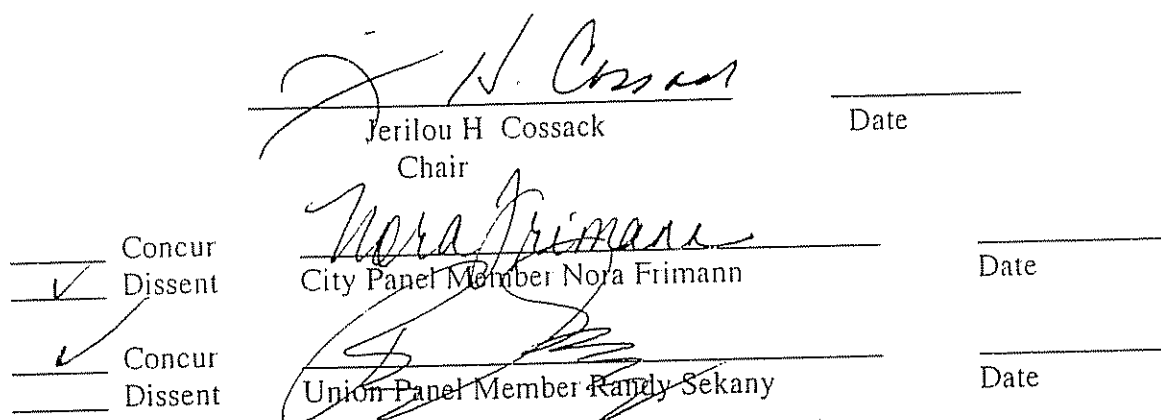 J H. Cossack
Jerilou H Cossack
Date
Chair
Nora Frimann
Concur
✓ Dissent
City Panel Member Nora Frimann
Date
✓ Concur
Dissent
Union Panel Member Randy Sekany
Date